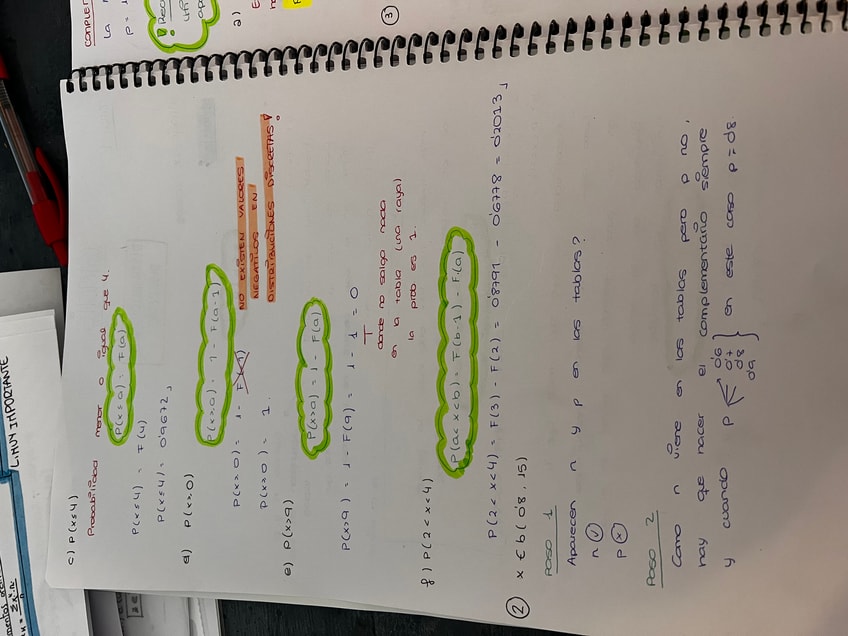 c) P(x≤4)
Probabilidad menor o igual que 4.
P(x≤a) = F(a)
P(x≤4) = F(4)
P(x≤4) = 0'9672
d) P(x≥0)
P(x≥a) = 1 - F(a-1)
P(x≥0) = 1 -
NO EXISTEN VALORES
NEGATIVOS EN
DISTRIBUCIONES DISCRETAS!
P(x≥0) = 1.
e) P(x>9)
P(x>a) = 1 - F(a)
P(x>9) = 1 - F(9) = 1 - 1 = 0
donde no salga nada
en la tabla (una raya)
la prob es 1.
f) P(2<x<4)
P(a<x<b) = F(b-1) - F(a)
P(2<x<4) = F(3) - F(2) = 0'8791 - 0'6778 = 0'2013
② x ∈ b(0'8, 15)
PASO 1
Aparecen n y p en las tablas?
n ✓
p x
PASO 2
Como n viene en las tablas pero p no,
hay que hacer el complementario siempre
y cuando p
0'6
0'7
0'8
0'9
en este caso p = 0'8.
COMPLEM
La
p = 1
Reco
uti
ap
2)
E
③
L: MUY IMPORTANTE